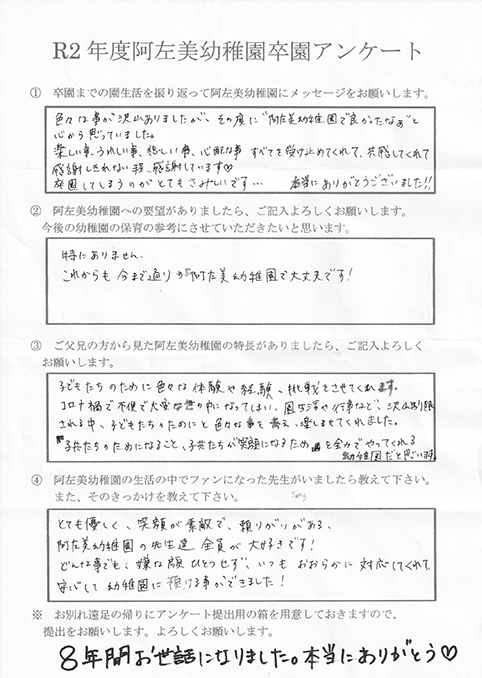 R2 年度阿左美幼稚園卒園アンケート
① 卒園までの園生活を振り返って阿左美幼稚園にメッセージをお願いします。
色々な事が沢山ありましたが、その度に"阿左美幼稚園で良かったなぁ"と
心から思っていました。
楽しい事、うれしい事、悲しい事、心配な事 すべてを受け止めてくれて、共感してくれて
感謝しきれない程、感謝しています♡
卒園してしまうのがとてもさみしいです… 本当にありがとうございました!!
② 阿左美幼稚園への要望がありましたら、ご記入よろしくお願いします。
今後の幼稚園の保育の参考にさせていただきたいと思います。
特にありません.
これからも今まで通りの阿左美幼稚園で大丈夫です!
③ ご父兄の方から見た阿左美幼稚園の特長がありましたら、ご記入よろしく
お願いします。
子どもたちのために色々な体験や経験、挑戦をさせてくれます。
コロナ禍で不便で大変な世の中になってしまい、園生活や行事など、沢山制限
される中、子どもたちのためにと色々な事を考え、楽しませてくれました。
子供たちのためになること、子供たちが笑顔になるため を全力でやってくれる
幼稚園だと思います。
④ 阿左美幼稚園の生活の中でファンになった先生がいましたら教えて下さい。
また、そのきっかけを教えて下さい。
とても優しく、笑顔が素敵で、頼りがいがある、
阿左美幼稚園の先生達 全員が大好きです!
どんな事でも、嫌な顔ひとつせず、いつもおおらかに対応してくれて
安心して幼稚園に預ける事ができました!
※ お別れ遠足の帰りにアンケート提出用の箱を用意しておきますので、
提出をお願いします。よろしくお願いします。
8年間お世話になりました。本当にありがとう♡